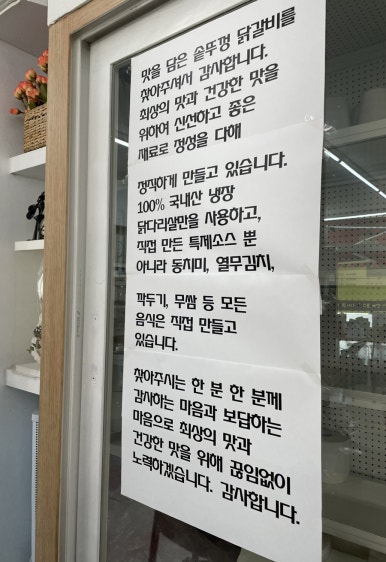 맛을 담은 솥뚜껑 닭갈비를
찾아주셔서 감사합니다.
최상의 맛과 건강한 맛을
위하여 신선하고 좋은
재료로 정성을 다해
정직하게 만들고 있습니다.
100% 국내산 냉장
닭다리살만을 사용하고,
직접 만든 특제소스 뿐
아니라 동치미, 열무김치,
깍두기, 무쌈 등 모든
음식은 직접 만들고
있습니다.
찾아주시는 한 분 한 분께
감사하는 마음과 보답하는
마음으로 최상의 맛과
건강한 맛을 위해 끊임없이
노력하겠습니다. 감사합니다.